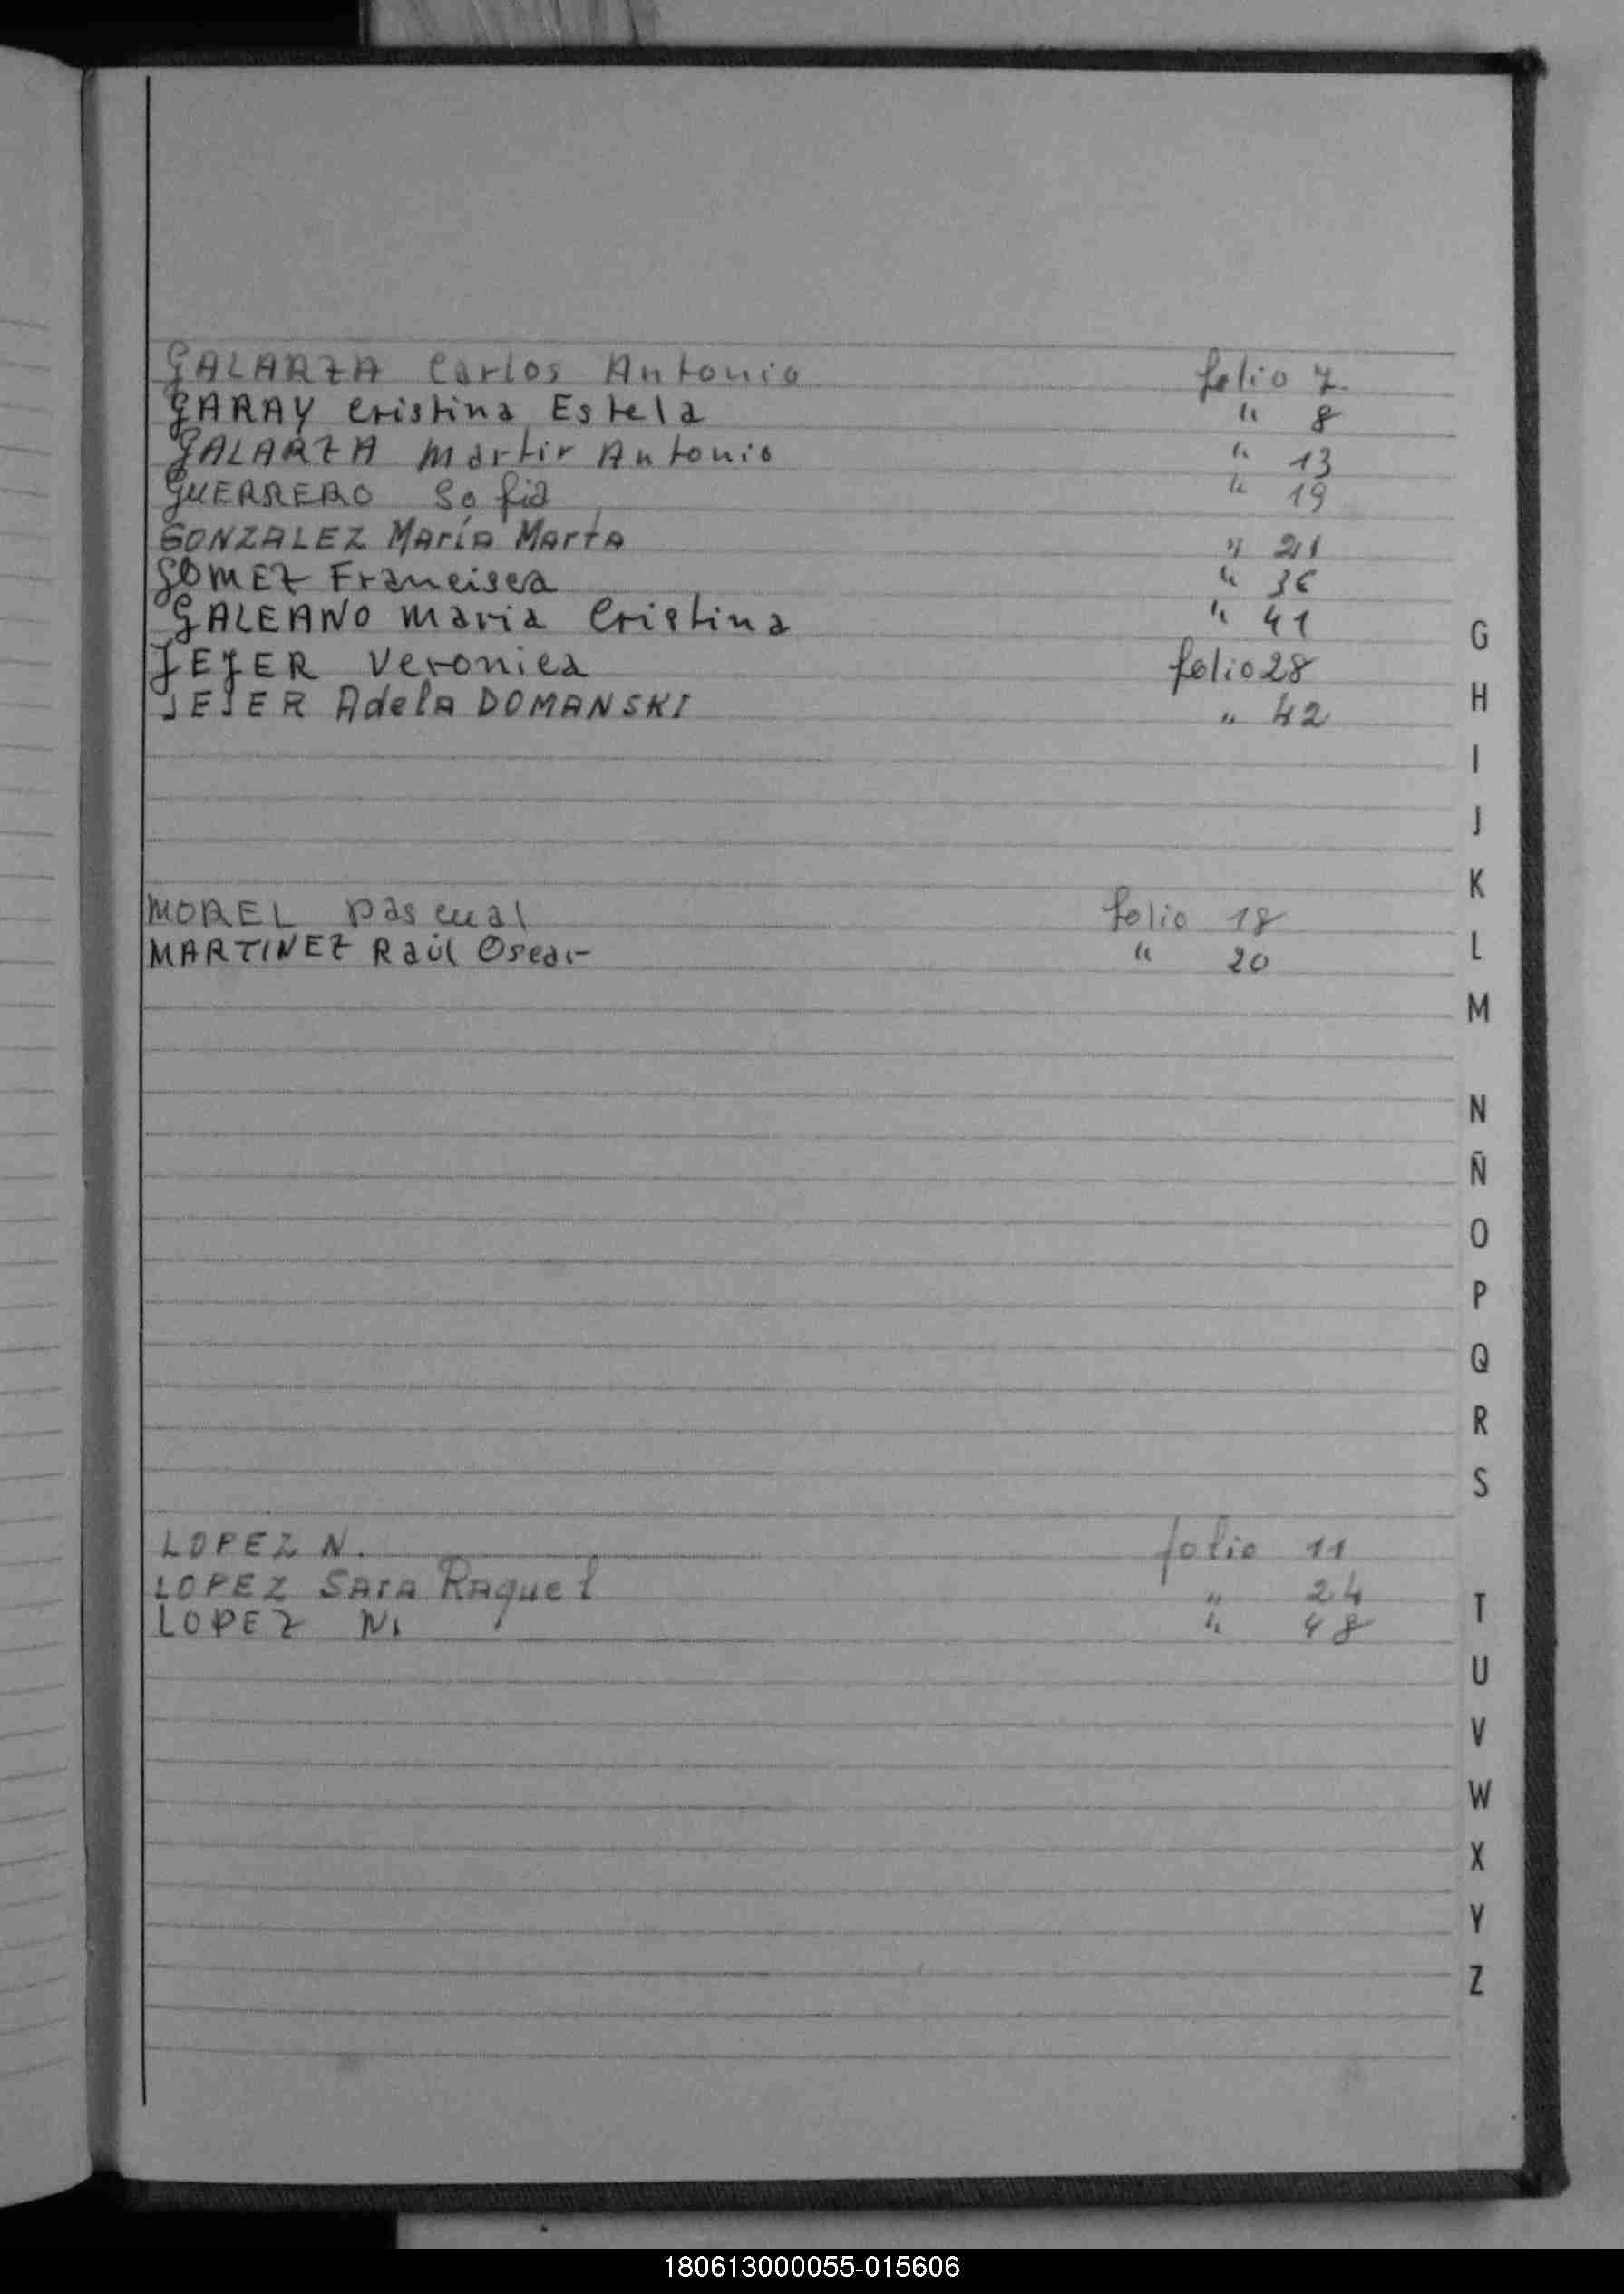 GALARZA Carlos Antonio folio 7
GARAY Cristina Estela " 8
GALARZA Martir Antonio " 13
GUERRERO Sofia " 19
GONZALEZ María Marta " 21
GOMEZ Francisca " 36
GALEANO Maria Cristina " 41
JEJER Veronica folio 28
JEJER Adela DOMANSKI " 42
MOREL Pascual folio 18
MARTINEZ Raúl Oscar " 20
LOPEZ N. folio 11
LOPEZ Sara Raquel " 24
LOPEZ N. " 48
G
H
I
J
K
L
M
N
Ñ
O
P
Q
R
S
T
U
V
W
X
Y
Z
180613000055-015606